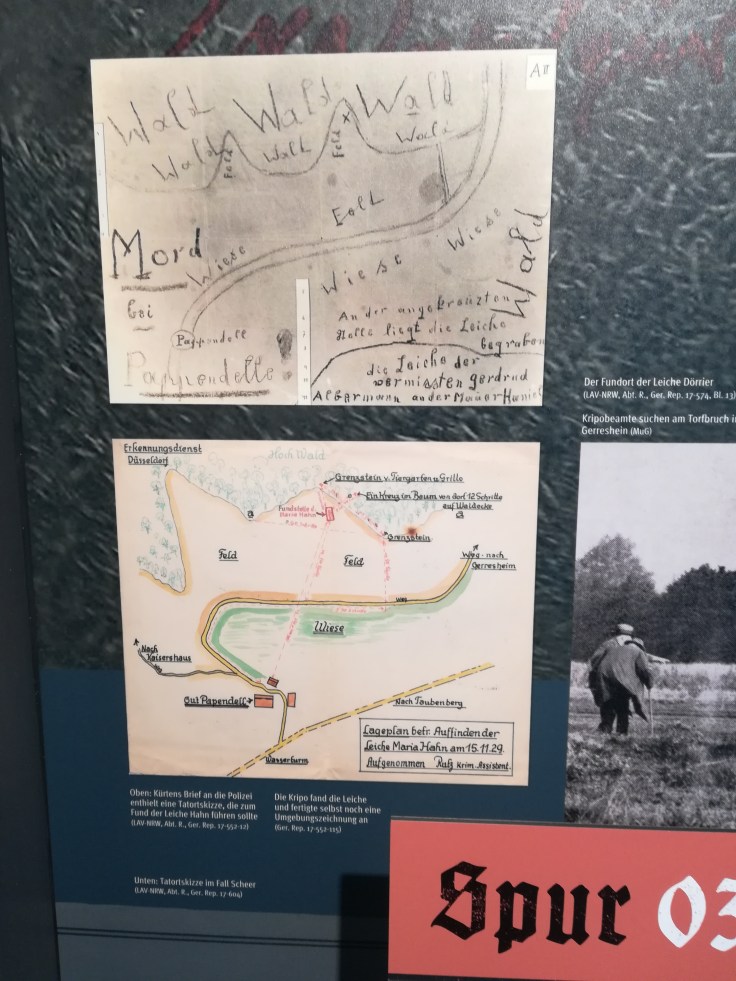 A II
Wald Wald Wald
Wald Feld Wald Feld x Wald
Mord
Wiese
Wiese
Wiese
Wald
bei
Pappendell
Pappendelle
An der angekreuzten
Stelle liegt die Leiche
begraben
die Leiche der
vermissten gerdrud
Albermann an der Mauer Haniel
Der Fundort der Leiche Dörrier
(LAV-NRW, Abt. R., Ger. Rep. 17-574, Bl. 13)
Kripobeamte suchen am Torfbruch in
Gerreshein (MuG)
Erkennungsdienst
Düsseldorf
Hoch Wald
Grenzstein v. Tiergarten u. Grillo
Ein Kreuz im Baum von dort 12 Schritte
auf Waldecke
Fundstelle d.
Maria Hahn
Grenzstein
Feld
Feld
Weg nach
Gerresheim
Weg
Wiese
Nach
Kaisershaus
Gut Papendell
Nach Taubenberg
Wasserturm
Lageplan betr. Auffinden der
Leiche Maria Hahn am 15.11.29.
Aufgenommen Krim. Assistent.
Oben: Kürtens Brief an die Polizei
enthielt eine Tatortskizze, die zum
Fund der Leiche Hahn führen sollte
(LAV-NRW, Abt. R., Ger. Rep. 17-552-12)
Die Kripo fand die Leiche
und fertigte selbst noch eine
Umgebungszeichnung an
(Ger. Rep. 17-552-115)
Unten: Tatortskizze im Fall Scheer
(LAV-NRW, Abt. R., Ger. Rep. 17-604)
Spur 03